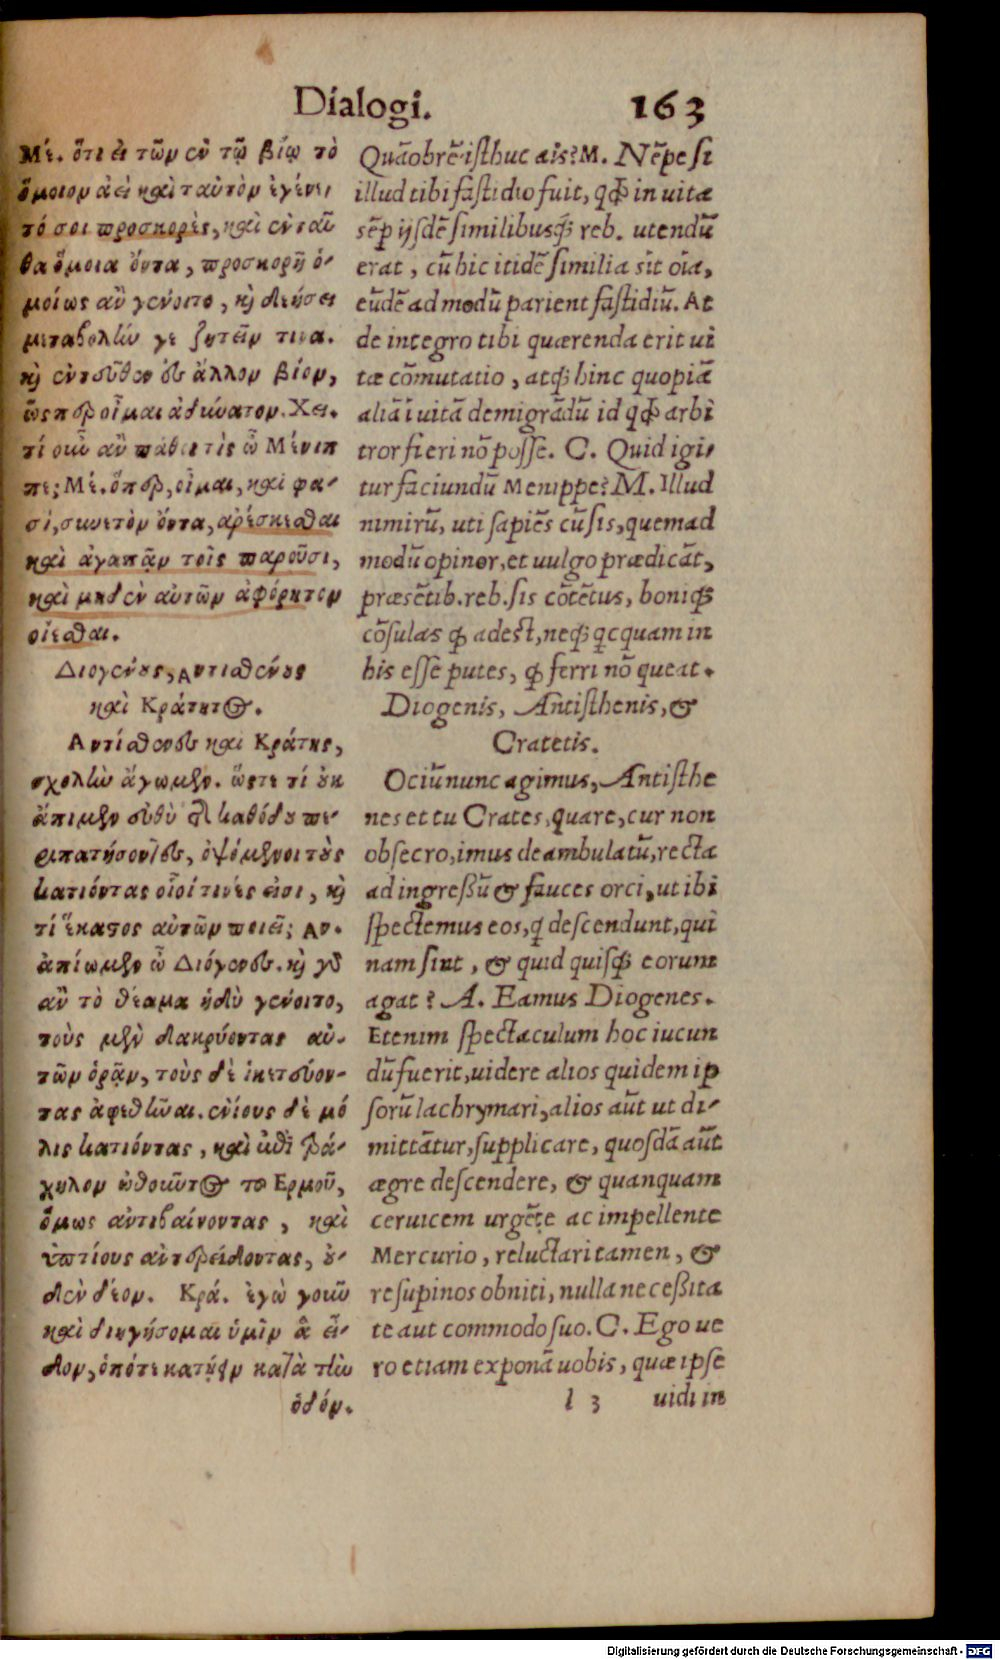 Dialogi. 163
Μέ. ὅτι εἰ τῶν ἐν τῷ βίῳ τὸ
ὅμοιον ἀεὶ καὶ ταὐτὸν ἐγένε-
τό σοι προσκορὲς, καὶ ἐνταῦ
θα ὅμοια ὄντα, προσκορῆ ὁ-
μοίως ἂν γένοιτο, καὶ δεήσει
μεταβολήν γε ζητεῖν τινα.
καὶ ἐντεῦθεν εἰς ἄλλον βίον,
ὥσπερ οἶμαι ἀδύνατον. Χει.
τί οὖν ἂν πάθοι τὶς ὦ Μένιπ
πε; Μέ. ὅπερ, οἶμαι, καὶ φα-
σί, συνετὸν ὄντα, ἀρέσκεσθαι
καὶ ἀγαπᾷν τοῖς παροῦσι,
καὶ μηδὲν αὐτῶν ἀφόρητον
οἴεσθαι.
Διογένους, Αντισθένους
καὶ Κράτητος.
Αντίσθενες καὶ Κράτης,
σχολὴν ἄγωμεν. ὥστε τί οὐκ
ἄπιμεν εὐθὺ τῆς καθόδου πε-
ριπατήσοντες, ὀψόμενοι τοὺς
κατιόντας οἷοί τινές εἰσι, καὶ
τί ἕκαστος αὐτῶν ποιεῖ; Αν.
ἀπίωμεν ὦ Διόγενες. καὶ γὰρ
ἂν τὸ θέαμα ἡδὺ γένοιτο,
τοὺς μὲν δακρύοντας αὐ-
τῶν ὁρᾷν, τοὺς δὲ ἱκετεύον-
τας ἀφεθῆναι. ἐνίους δὲ μό
λις κατιόντας, καὶ ἐπὶ τρά-
χηλον ὠθοῦντος τοῦ Ερμοῦ,
ὅμως ἀντιβαίνοντας, καὶ
ὑπτίους ἀντερείδοντας, οὐ-
δὲν δέον. Κρά. ἐγὼ γοῦν
καὶ διηγήσομαι ὑμῖν ἃ εἶ-
δον, ὁπότε κατῄειν κατὰ τὴν
ὁδόν.
Quāobrē isthuc ais? M. Nēpe si
illud tibi fastidio fuit, qđ in uita
sēp ijsdē similibusq; reb. utendū
erat, cū hic itidē similia sīt oīa,
eūdē ad modū parient fastidiū. At
de integro tibi quærenda erit ui
tæ cōmutatio, atq; hinc quopiā
aliā ī uitā demigrādū id qđ arbi
tror fieri nō posse. C. Quid igi-
tur faciundū Menippe? M. Illud
nimirū, uti sapiēs cū sis, quemad
modū opinor, et uulgo prædicāt,
præsētib. reb. sis cōtētus, boniq;
cōsulas qđ adest, neq; qcquam in
his esse putes, qđ ferri nō queat.
Diogenis, Antisthenis, &
Cratetis.
Ociū nunc agimus, Antisthe
nes et tu Crates, quare, cur non
obsecro, imus deambulatū, recta
ad ingressū & fauces orci, ut ibi
spectemus eos, q descendunt, qui
nam sint, & quid quisq; eorum
agat? A. Eamus Diogenes.
Etenim spectaculum hoc iucun
dū fuerit, uidere alios quidem ip
sorū lachrymari, alios aūt ut di-
mittātur, supplicare, quosdā aūt
ægre descendere, & quanquam
ceruicem urgēte ac impellente
Mercurio, reluctari tamen, &
resupinos obniti, nulla necessita
te aut commodo suo. C. Ego ue
ro etiam exponā uobis, quæ ipse
l 3 uidi in
Digitalisierung gefördert durch die Deutsche Forschungsgemeinschaft - DFG